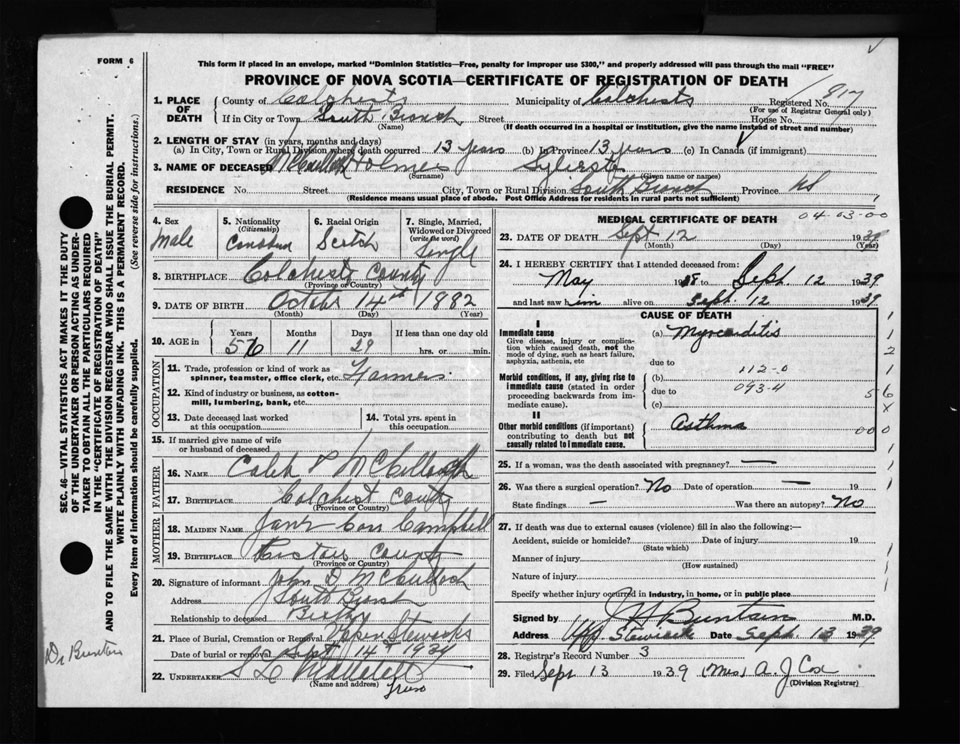 FORM 6
This form if placed in an envelope, marked "Dominion Statistics—Free, penalty for improper use $300," and properly addressed will pass through the mail "FREE"
PROVINCE OF NOVA SCOTIA—CERTIFICATE OF REGISTRATION OF DEATH
1. PLACE OF DEATH
County of Colchester Municipality of Colchester Registered No. 817
(For use of Registrar General only)
If in City or Town South Branch Street House No.
(Name) (If death occurred in a hospital or institution, give the name instead of street and number)
2. LENGTH OF STAY (in years, months and days)
(a) In City, Town or Rural Division where death occurred 13 years (b) In Province 13 years (c) In Canada (if immigrant)
3. NAME OF DECEASED McCulloch Holmes Sylvester
(Surname) (Given name or names)
RESIDENCE No. Street City, Town or Rural Division South Branch Province NS
(Residence means usual place of abode. Post Office Address for residents in rural parts not sufficient)
4. Sex male
5. Nationality (Citizenship) Canadian
6. Racial Origin Scotch
7. Single, Married, Widowed or Divorced (write the word) Single
8. BIRTHPLACE Colchester County
(Province or Country)
9. DATE OF BIRTH October 14th 1882
(Month) (Day) (Year)
10. AGE in Years 56 Months 11 Days 29 If less than one day old hrs. or min.
OCCUPATION
11. Trade, profession or kind of work as spinner, teamster, office clerk, etc. Farmer
12. Kind of industry or business, as cotton-mill, lumbering, bank, etc.
13. Date deceased last worked at this occupation
14. Total yrs. spent in this occupation
15. If married give name of wife or husband of deceased
FATHER
16. Name Caleb McCullough
17. Birthplace Colchest County
(Province or Country)
MOTHER
18. Maiden Name Jane Campbell
19. Birthplace Pictou County
(Province or Country)
20. Signature of informant John D McCulloch
Address South Branch
Relationship to deceased Brother
21. Place of Burial, Cremation or Removal Upper Stewiacke
Date of burial or removal Sept 14th 1939
22. UNDERTAKER
(Name and address) Truro
MEDICAL CERTIFICATE OF DEATH
04-03-00
23. DATE OF DEATH Sept 12 1939
(Month) (Day) (Year)
24. I HEREBY CERTIFY that I attended deceased from:
May 1938 to Sept. 12 1939
and last saw him alive on Sept. 12 1939
CAUSE OF DEATH
I
Immediate cause
Give disease, injury or complication which caused death, not the mode of dying, such as heart failure, asphyxia, asthenia, etc
(a) Myocarditis
due to
112-0
Morbid conditions, if any, giving rise to immediate cause (stated in order proceeding backwards from immediate cause).
(b)
due to 093-4
(c)
II
Other morbid conditions (if important) contributing to death but not causally related to immediate cause.
Asthma
25. If a woman, was the death associated with pregnancy? —
26. Was there a surgical operation? No Date of operation — 19
State findings — Was there an autopsy? No
27. If death was due to external causes (violence) fill in also the following:—
Accident, suicide or homicide? Date of injury 19
(State which)
Manner of injury
(How sustained)
Nature of injury
Specify whether injury occurred in Industry, in home, or in public place
Signed by Buntain M.D.
Address Upp. Stewiacke Date Sept. 13 1939
28. Registrar's Record Number 3
29. Filed Sept 13 1939 (Mrs) A. J Cox
(Division Registrar)
SEC. 46—VITAL STATISTICS ACT MAKES IT THE DUTY
OF THE UNDERTAKER OR PERSON ACTING AS UNDER-
TAKER TO OBTAIN ALL THE PARTICULARS REQUIRED
IN THE "CERTIFICATE OF REGISTRATION OF DEATH"
AND TO FILE THE SAME WITH THE DIVISION REGISTRAR WHO SHALL ISSUE THE BURIAL PERMIT.
WRITE PLAINLY WITH UNFADING INK. THIS IS A PERMANENT RECORD.
Every item of information should be carefully supplied. (See reverse side for instructions.)
Dr Buntain